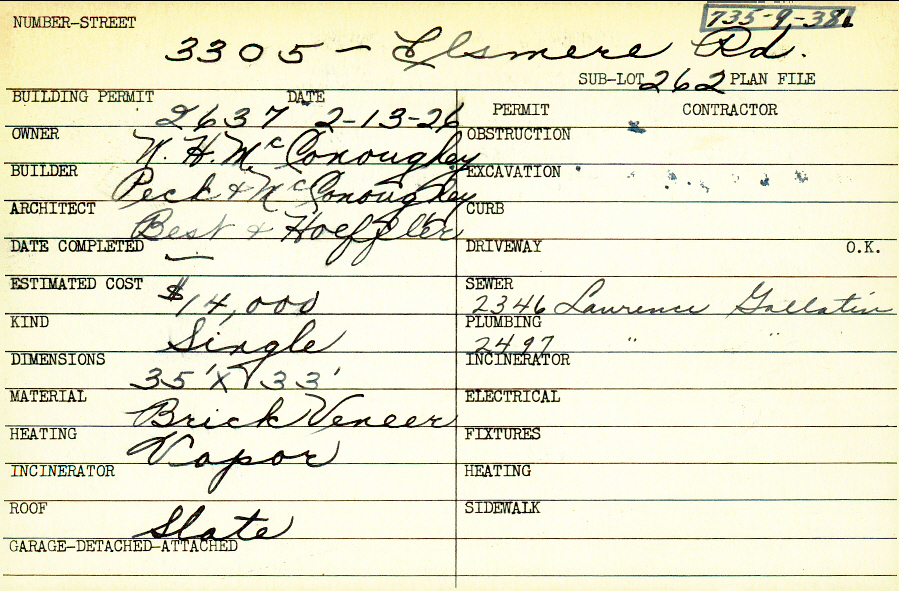 NUMBER-STREET 735-9-38
3305 - Elsmere Rd.
SUB-LOT 262 PLAN FILE
BUILDING PERMIT DATE PERMIT CONTRACTOR
2637 2-13-26
OWNER OBSTRUCTION
W. H. McConoughey
BUILDER EXCAVATION
Peck & McConoughey
ARCHITECT CURB
Best & Hoeffler
DATE COMPLETED DRIVEWAY O.K.
—
ESTIMATED COST SEWER
$14,000 2346 Lawrence Gallatin
KIND PLUMBING
Single 2497 " "
DIMENSIONS INCINERATOR
35' X 33'
MATERIAL ELECTRICAL
Brick Veneer
HEATING FIXTURES
Vapor
INCINERATOR HEATING
ROOF SIDEWALK
Slate
GARAGE-DETACHED-ATTACHED